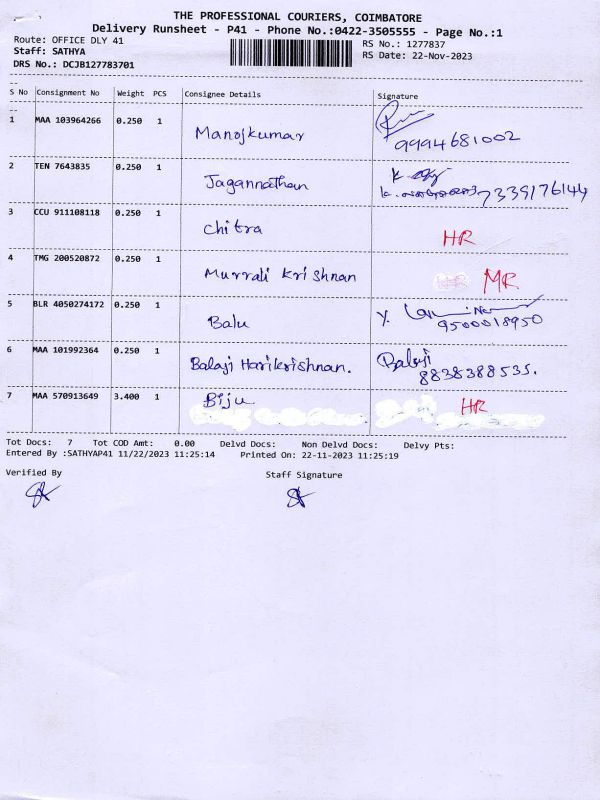 THE PROFESSIONAL COURIERS, COIMBATORE
Delivery Runsheet - P41 - Phone No.:0422-3505555 - Page No.:1
Route: OFFICE DLY 41
RS No.: 1277837
Staff: SATHYA
RS Date: 22-Nov-2023
DRS No.: DCJB127783701
S No Consignment No Weight PCS Consignee Details Signature
1 MAA 103964266 0.250 1 Manojkumar
9994681002
2 TEN 7643835 0.250 1 Jagannathan
7339176144
3 CCU 911108118 0.250 1 Chitra HR
4 TMG 200520872 0.250 1 Murrali Krishnan MR
5 BLR 4050274172 0.250 1 Balu
9500018950
6 MAA 101992364 0.250 1 Balaji Harikrishnan. Balaji
8838388535.
7 MAA 570913649 3.400 1 Biju HR
Tot Docs: 7 Tot COD Amt: 0.00 Delvd Docs: Non Delvd Docs: Delvy Pts:
Entered By :SATHYAP41 11/22/2023 11:25:14 Printed On: 22-11-2023 11:25:19
Verified By Staff Signature